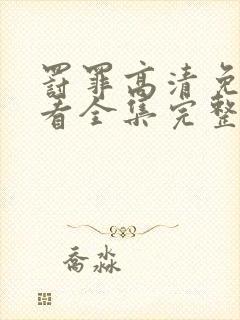 罚罪高清免
看全集完整
乔淼